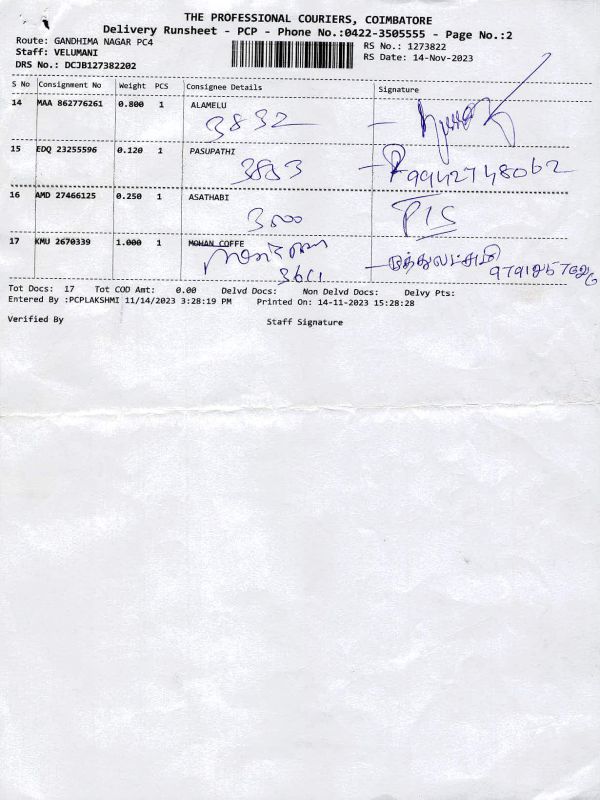 THE PROFESSIONAL COURIERS, COIMBATORE
Delivery Runsheet - PCP - Phone No.:0422-3505555 - Page No.:2
Route: GANDHIMA NAGAR PC4
RS No.: 1273822
Staff: VELUMANI
RS Date: 14-Nov-2023
DRS No.: DCJB127382202
S No Consignment No Weight PCS Consignee Details Signature
14 MAA 862776261 0.800 1 ALAMELU
3832
15 EDQ 23255596 0.120 1 PASUPATHI
3803 9942748062
16 AMD 27466125 0.250 1 ASATHABI
3500 P1S
17 KMU 2670339 1.000 1 MOHAN COFFE
முத்துலட்சுமி
Tot Docs: 17 Tot COD Amt: 0.00 Delvd Docs: Non Delvd Docs: Delvy Pts:
Entered By :PCPLAKSHMI 11/14/2023 3:28:19 PM Printed On: 14-11-2023 15:28:28
Verified By Staff Signature